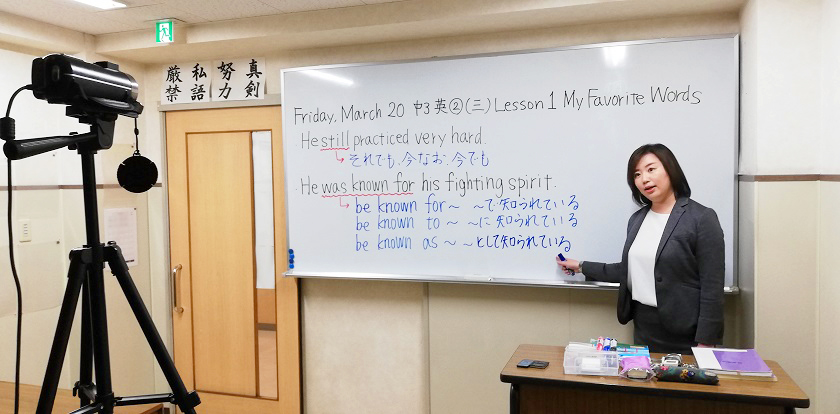 真剣
努力
私語
厳禁
Friday, March 20 中3英②(三) Lesson 1 My Favorite Words
He still practiced very hard.
それでも、今なお、今でも
He was known for his fighting spirit.
be known for〜 〜で知られている
be known to 〜 〜に知られている
be known as 〜 〜として知られている